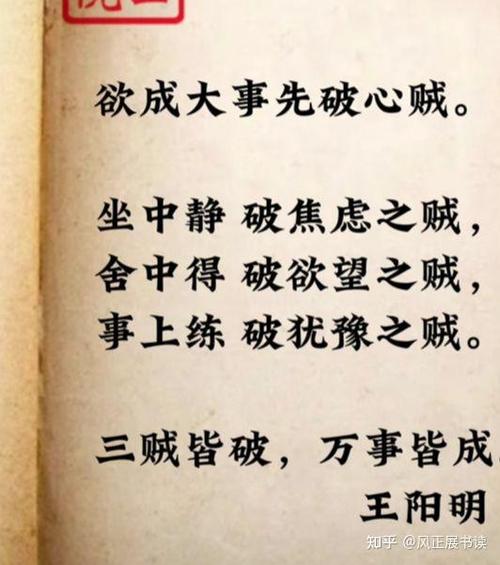 欲成大事先破心贼。
坐中静 破焦虑之贼，
舍中得 破欲望之贼，
事上练 破犹豫之贼。
三贼皆破，万事皆成
王阳明
知乎 @风正展书读